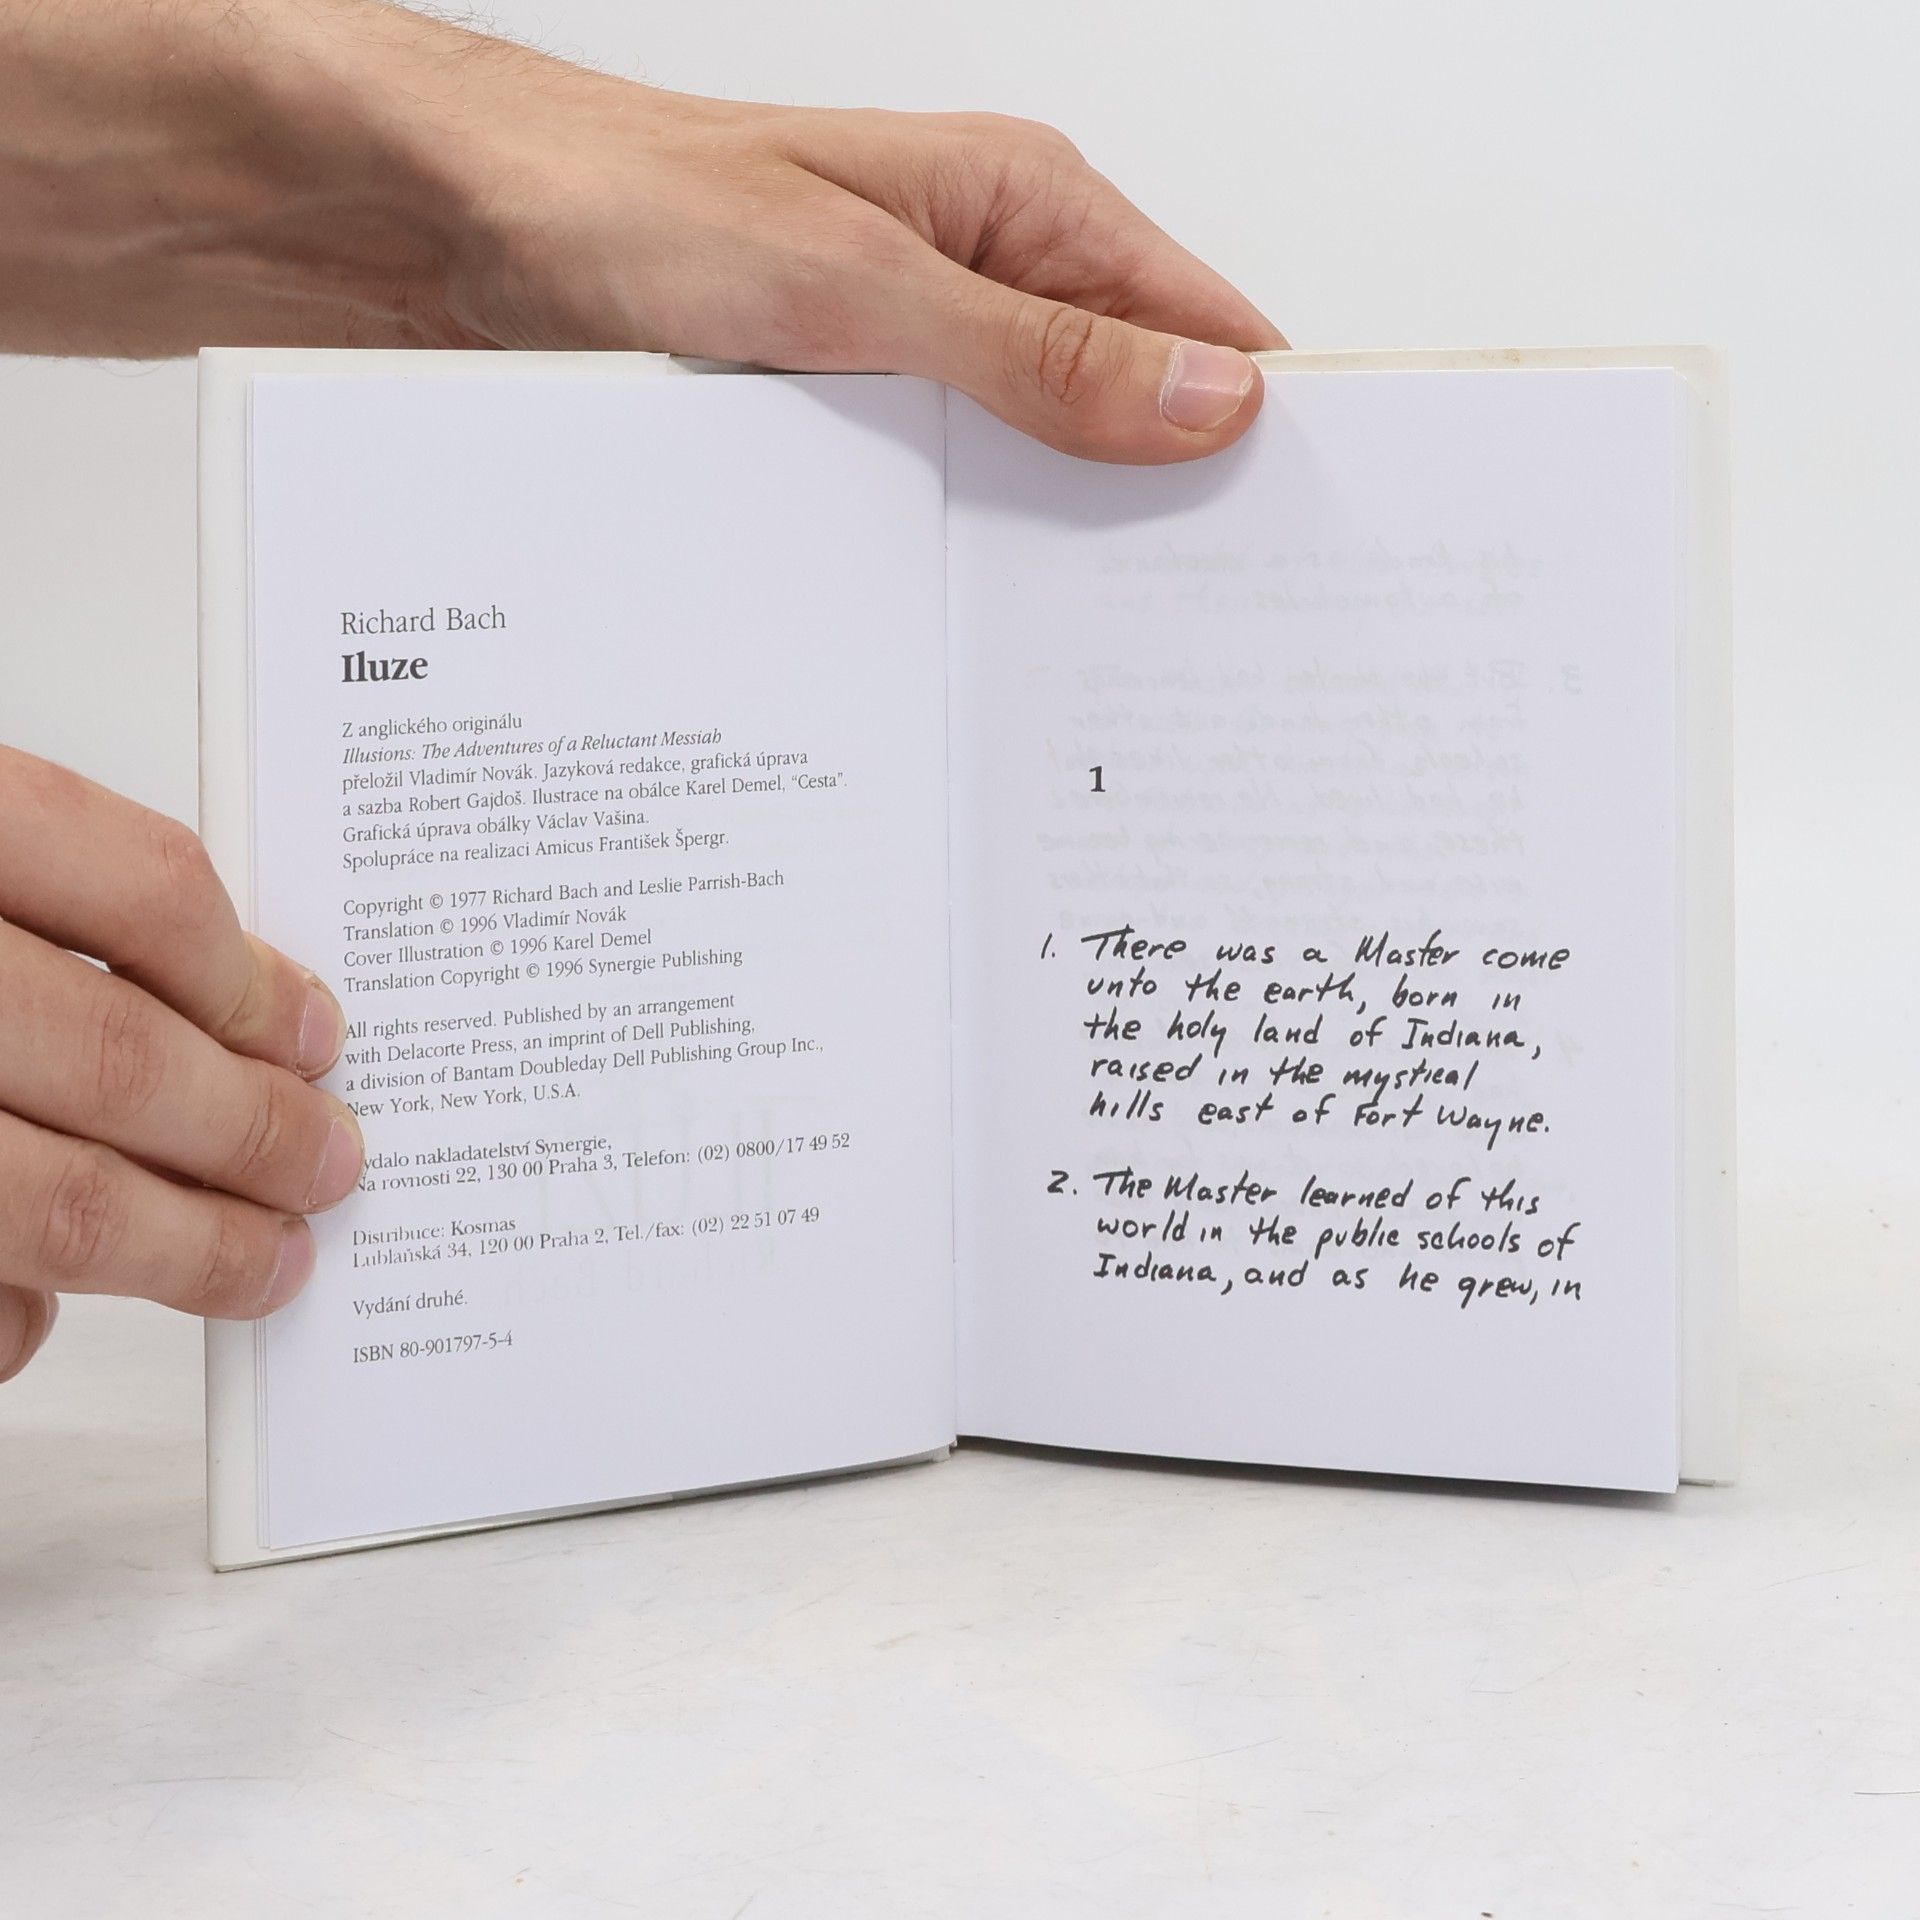 Richard Bach
Iluze
Z anglického originálu
Illusions: The Adventures of a Reluctant Messiah
přeložil Vladimír Novák. Jazyková redakce, grafická úprava
a sazba Robert Gajdoš. Ilustrace na obálce Karel Demel, “Cesta”.
Grafická úprava obálky Václav Vašina.
Spolupráce na realizaci Amicus František Špergr.
Copyright © 1977 Richard Bach and Leslie Parrish-Bach
Translation © 1996 Vladimír Novák
Cover Illustration © 1996 Karel Demel
Translation Copyright © 1996 Synergie Publishing
All rights reserved. Published by an arrangement
with Delacorte Press, an imprint of Dell Publishing,
a division of Bantam Doubleday Dell Publishing Group Inc.,
New York, New York, U.S.A.
ydalo nakladatelství Synergie,
Na rovnosti 22, 130 00 Praha 3, Telefon: (02) 0800/17 49 52
Distribuce: Kosmas
Lublaňská 34, 120 00 Praha 2, Tel./fax: (02) 22 51 07 49
Vydání druhé.
ISBN 80-901797-5-4
1
1. There was a Master come
unto the earth, born in
the holy land of Indiana,
raised in the mystical
hills east of Fort Wayne.
2. The Master learned of this
world in the public schools of
Indiana, and as he grew, in